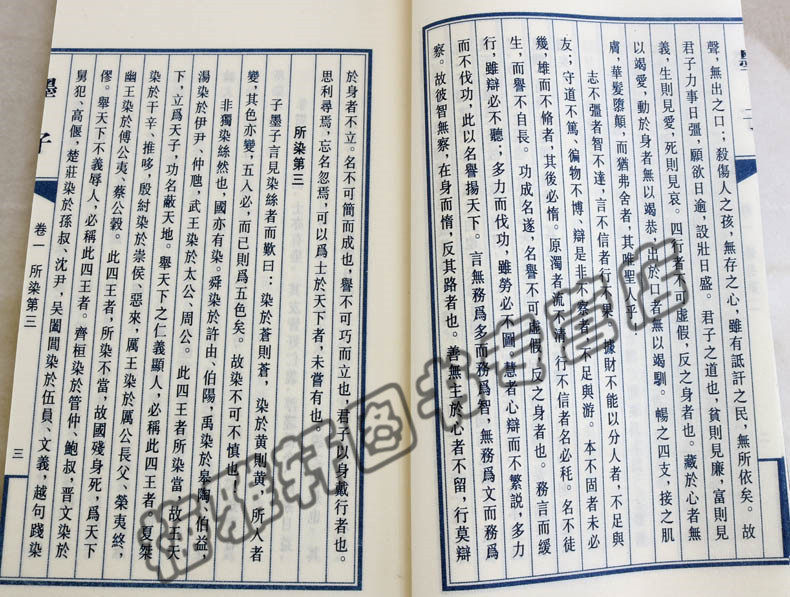 聲，無出之口；殺傷人之孩，無存之心，雖有詆訐之民，無所依矣。故
君子力事日彊，願欲日逾，設壯日盛。君子之道也，貧則見廉，富則見
義，生則見愛，死則見哀。四行者不可虛假，反之身者也。藏於心者無
以竭愛，動於身者無以竭恭，出於口者無以竭馴。暢之四支，接之肌
膚，華髮隳顛，而猶弗舍者，其唯聖人乎！
志不彊者智不達，言不信者行不果。據財不能以分人者，不足與
友；守道不篤、徧物不博、辯是非不察者，不足與游。本不固者末必
幾，雄而不脩者，其後必惰。原濁者流不清，行不信者名必秏。名不徒
生，而譽不自長。功成名遂，名譽不可虛假，反之身者也。務言而緩
行，雖辯必不聽；多力而伐功，雖勞必不圖。慧者心辯而不繁說，多力
而不伐功，此以名譽揚天下。言無務爲多而務爲智，無務爲文而務爲
察。故彼智無察，在身而惰，反其路者也。善無主於心者不留，行莫辯
於身者不立。名不可簡而成也，譽不可巧而立也，君子以身戴行者也。
思利尋焉，忘名忽焉，可以爲士於天下者，未嘗有也。
所染第三
子墨子言見染絲者而歎曰：染於蒼則蒼，染於黃則黃，所入者
變，其色亦變，五入必，而已則爲五色矣。故染不可不慎也！
非獨染絲然也，國亦有染。舜染於許由、伯陽，禹染於皋陶、伯益，
湯染於伊尹、仲虺，武王染於太公、周公。此四王者所染當，故王天
下，立爲天子，功名蔽天地。舉天下之仁義顯人，必稱此四王者。夏桀
染於干辛、推哆，殷紂染於崇侯、惡來，厲王染於厲公長父、榮夷終，
幽王染於傅公夷、蔡公穀。此四王者，所染不當，故國殘身死，爲天下
僇。舉天下不義辱人，必稱此四王者。齊桓染於管仲、鮑叔，晋文染於
舅犯、高偃，楚莊染於孫叔、沈尹，吳闔閭染於伍員、文義，越句踐染
墨子
卷一 所染第三
三